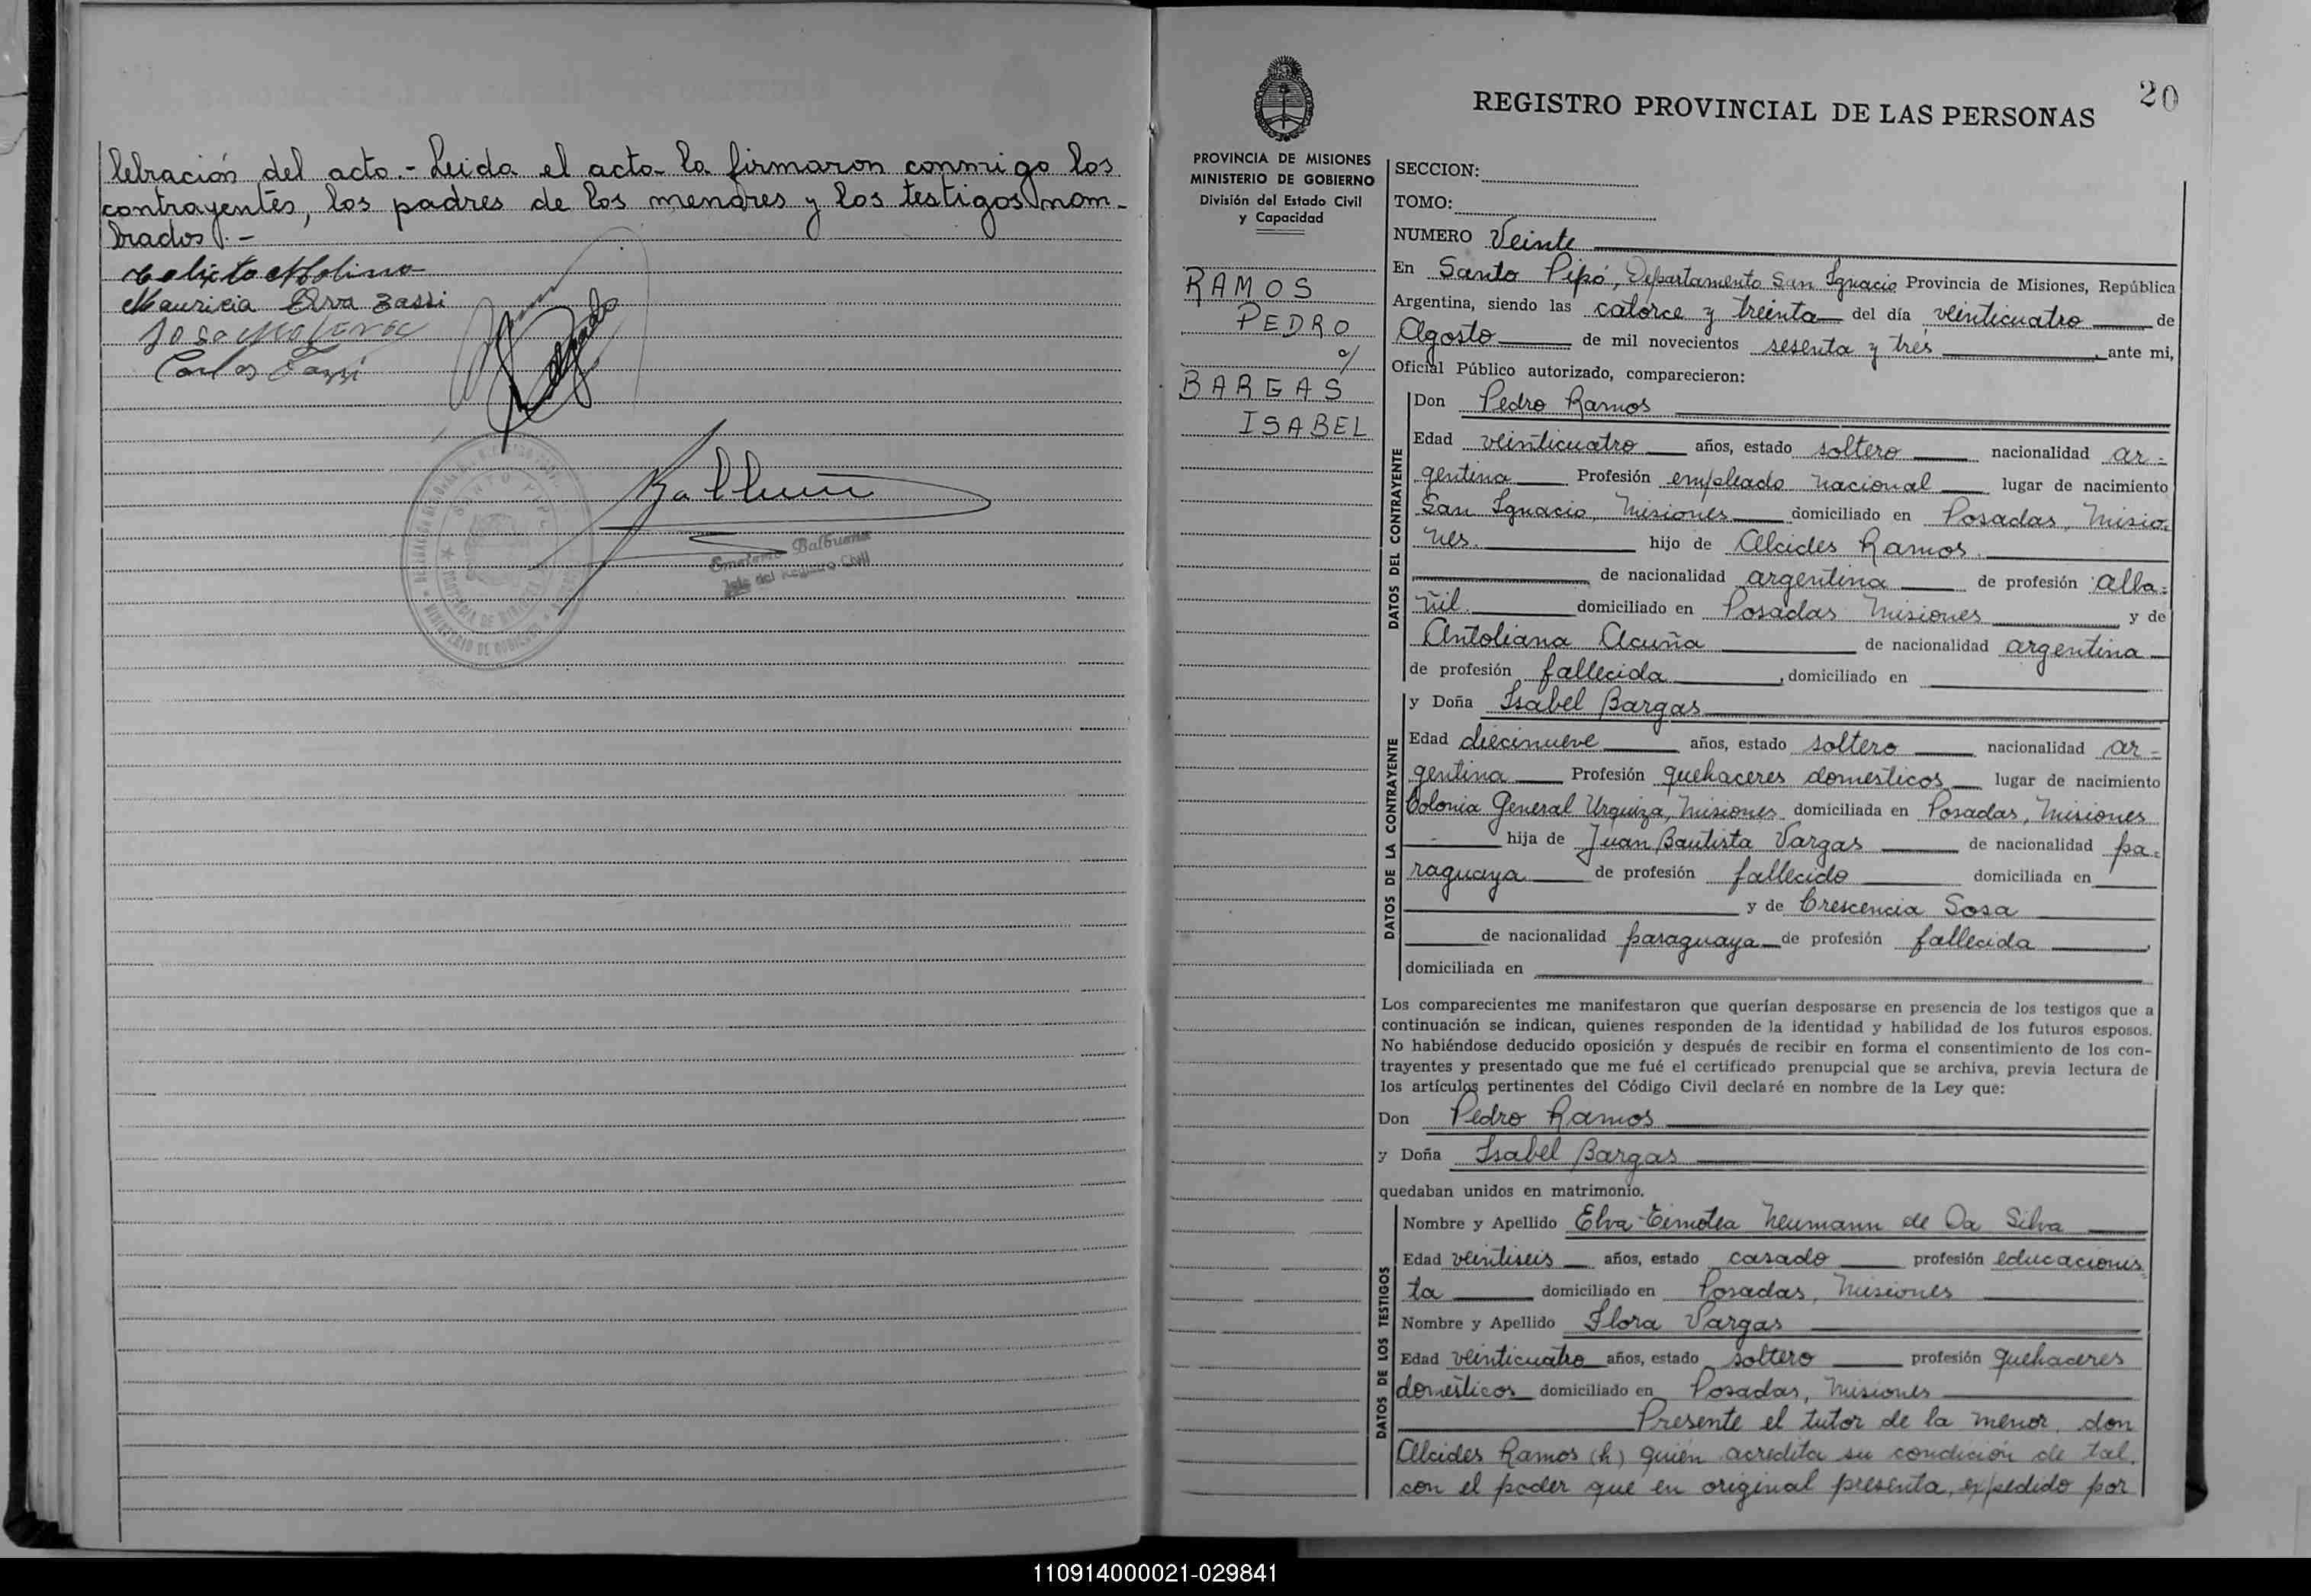 lebración del acto.- Leida el acta la firmaron conmigo los
contrayentes, los padres de los menores y los testigos nom-
brados.-
Calixto Molina
Mauricia Elva Zassi
Carlos
Delgado
SANTO PIPO
MINISTERIO DE GOBIERNO
PROVINCIA DE MISIONES
Balbuena
Emeterio Balbuena
Jefe del Registro Civil
20
REGISTRO PROVINCIAL DE LAS PERSONAS
PROVINCIA DE MISIONES
MINISTERIO DE GOBIERNO
División del Estado Civil
y Capacidad
RAMOS
PEDRO
%
BARGAS
ISABEL
SECCION:
TOMO:
NUMERO Veinte
En Santo Pipó, Departamento San Ignacio Provincia de Misiones, República
Argentina, siendo las catorce y treinta del día veinticuatro de
Agosto de mil novecientos sesenta y trés, ante mi,
Oficial Público autorizado, comparecieron:
DATOS DEL CONTRAYENTE
Don Pedro Ramos
Edad veinticuatro años, estado soltero nacionalidad ar-
gentina Profesión empleado nacional lugar de nacimiento
San Ignacio, Misiones domiciliado en Posadas, Misio-
nes. hijo de Alcides Ramos
de nacionalidad argentina de profesión alba-
ñil. domiciliado en Posadas Misiones y de
Antoliana Acuña de nacionalidad argentina
de profesión fallecida, domiciliado en
DATOS DE LA CONTRAYENTE
y Doña Isabel Bargas
Edad diecinueve años, estado soltero nacionalidad ar-
gentina Profesión quehaceres domesticos lugar de nacimiento
Colonia General Urquiza, Misiones domiciliada en Posadas, Misiones
hija de Juan Bautista Vargas de nacionalidad pa-
raguaya de profesión fallecido domiciliada en
y de Crescencia Sosa
de nacionalidad paraguaya de profesión fallecida,
domiciliada en
Los comparecientes me manifestaron que querían desposarse en presencia de los testigos que a
continuación se indican, quienes responden de la identidad y habilidad de los futuros esposos.
No habiéndose deducido oposición y después de recibir en forma el consentimiento de los con-
trayentes y presentado que me fué el certificado prenupcial que se archiva, previa lectura de
los artículos pertinentes del Código Civil declaré en nombre de la Ley que:
Don Pedro Ramos
y Doña Isabel Bargas
quedaban unidos en matrimonio.
DATOS DE LOS TESTIGOS
Nombre y Apellido Elva Timotea Neumann de Da Silva
Edad veintiseis años, estado casado profesión educacionis-
ta domiciliado en Posadas, Misiones
Nombre y Apellido Flora Vargas
Edad veinticuatro años, estado soltero profesión quehaceres
domésticos domiciliado en Posadas, Misiones
Presente el tutor de la menor, don
Alcides Ramos (h) quién acredita su condición de tal,
con el poder que en original presenta, expedido por
110914000021-029841